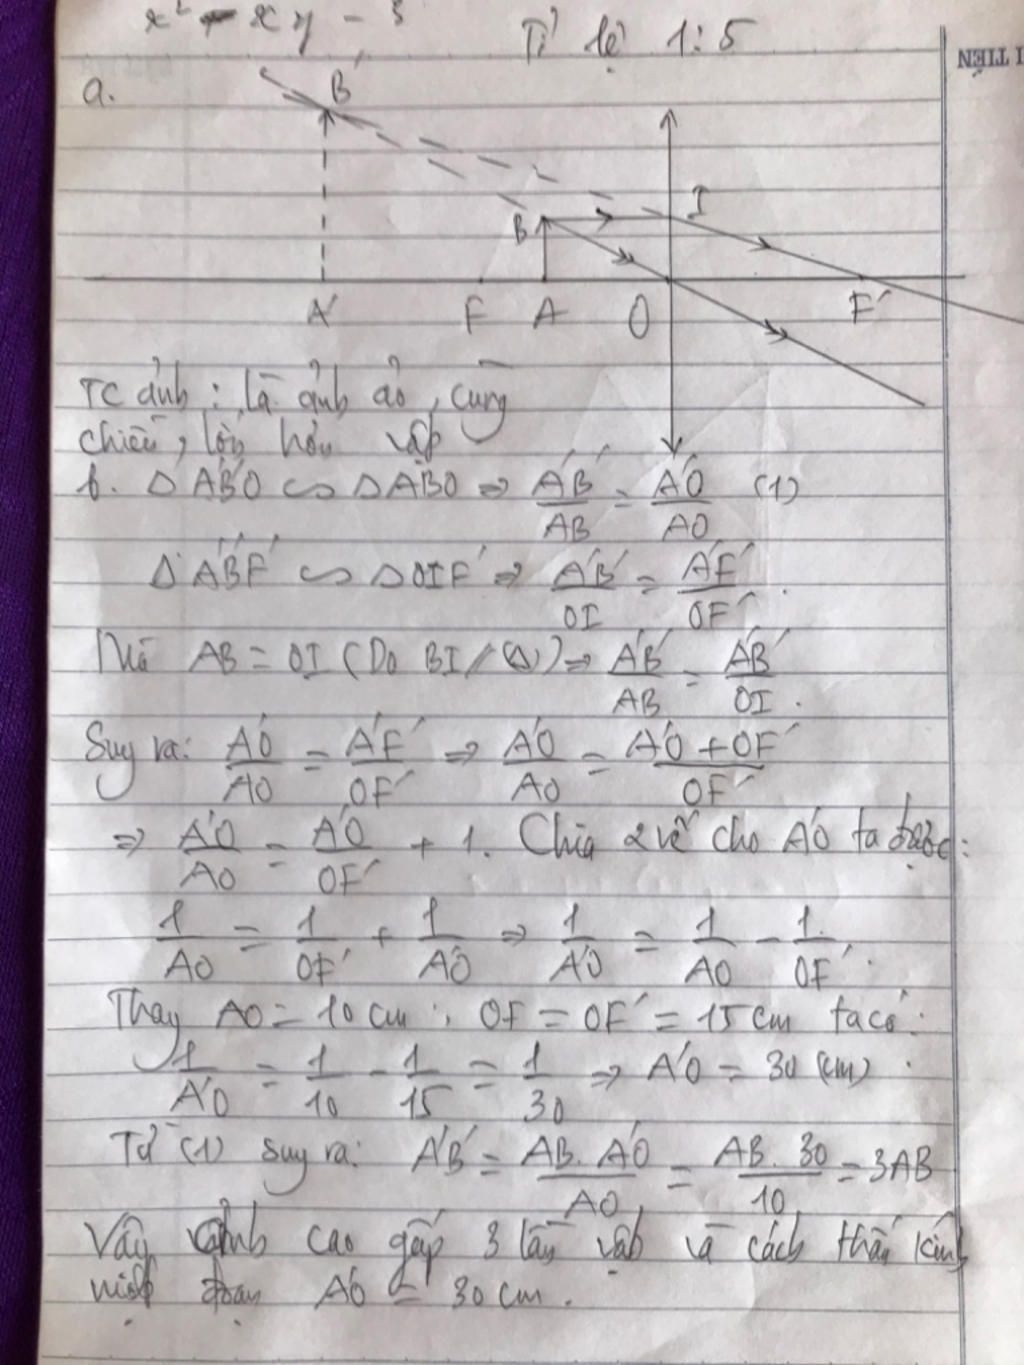 x² - xy - 3
Tỉ lệ 1:5
I TIẾN
a.
B'
I
B
A' F A O F'
TC ảnh : là ảnh ảo, cùng
chiều, lớn hơn vật
b. Δ A'B'O ∽ Δ ABO ⇒ A'B'/AB = A'O/AO (1)
Δ A'B'F' ∽ Δ OIF' ⇒ A'B'/OI = A'F'/OF'.
Mà AB = OI (Do BI // (Δ)) ⇒ A'B'/AB = A'B'/OI.
Suy ra: A'O/AO = A'F'/OF' ⇒ A'O/AO = A'O + OF'/OF'
⇒ A'O/AO = A'O/OF' + 1. Chia 2 vế cho A'O ta được:
1/AO = 1/OF' + 1/A'O ⇒ 1/A'O = 1/AO - 1/OF'.
Thay AO = 10 cm; OF = OF' = 15 cm ta có:
1/A'O = 1/10 - 1/15 = 1/30 ⇒ A'O = 30 (cm).
Từ (1) suy ra: A'B' = AB. A'O/AO = AB. 30/10 = 3AB
Vậy ảnh cao gấp 3 lần vật và cách thấu kính
một đoạn A'O = 30 cm.